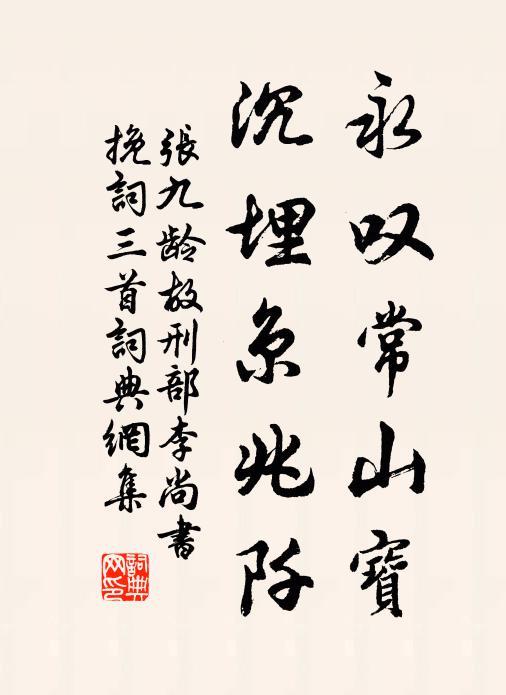 永叹常山寶
沉埋京兆阡
張九龄故刑部李尚書
挽詞三首詞典網集
詞典
网印